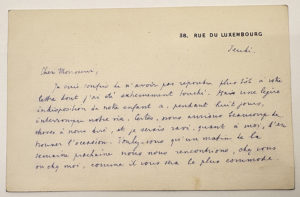 38, RUE DU LUXEMBOURG
Jeudi.
Cher Monsieur,
Je suis confus de n'avoir pas répondu plus tôt à votre
lettre dont j'ai été extrêmement touché. Mais une légère
indisposition de notre enfant a, pendant huit jours,
interrompu notre vie. Certes, nous aurions beaucoup de
choses à nous dire, et je serais ravi, quant à moi, d'en
trouver l'occasion. Voulez-vous qu'un matin de la
semaine prochaine nous nous rencontrions, chez vous
ou chez moi, comme il vous sera le plus commode.